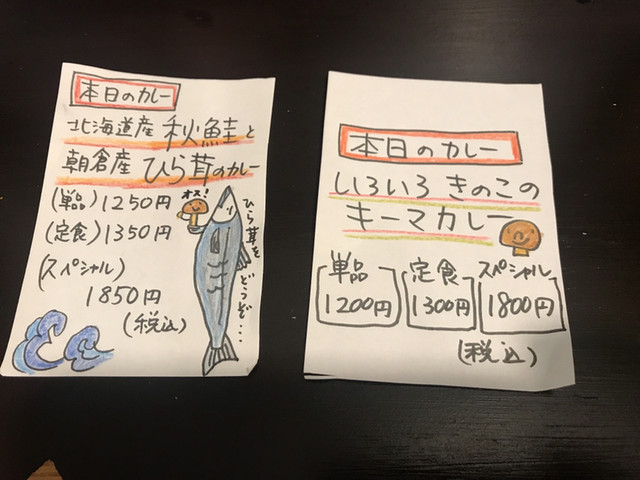 本日のカレー
北海道産 秋鮭と
朝倉産 ひら茸のカレー
(単品) 1250円
(定食) 1350円
(スペシャル)
1850円
(税込)
オス!
ひら茸を
どうぞ...
本日のカレー
いろいろ きのこの
キーマカレー
単品
1200円
定食
1300円
スペシャル
1800円
(税込)